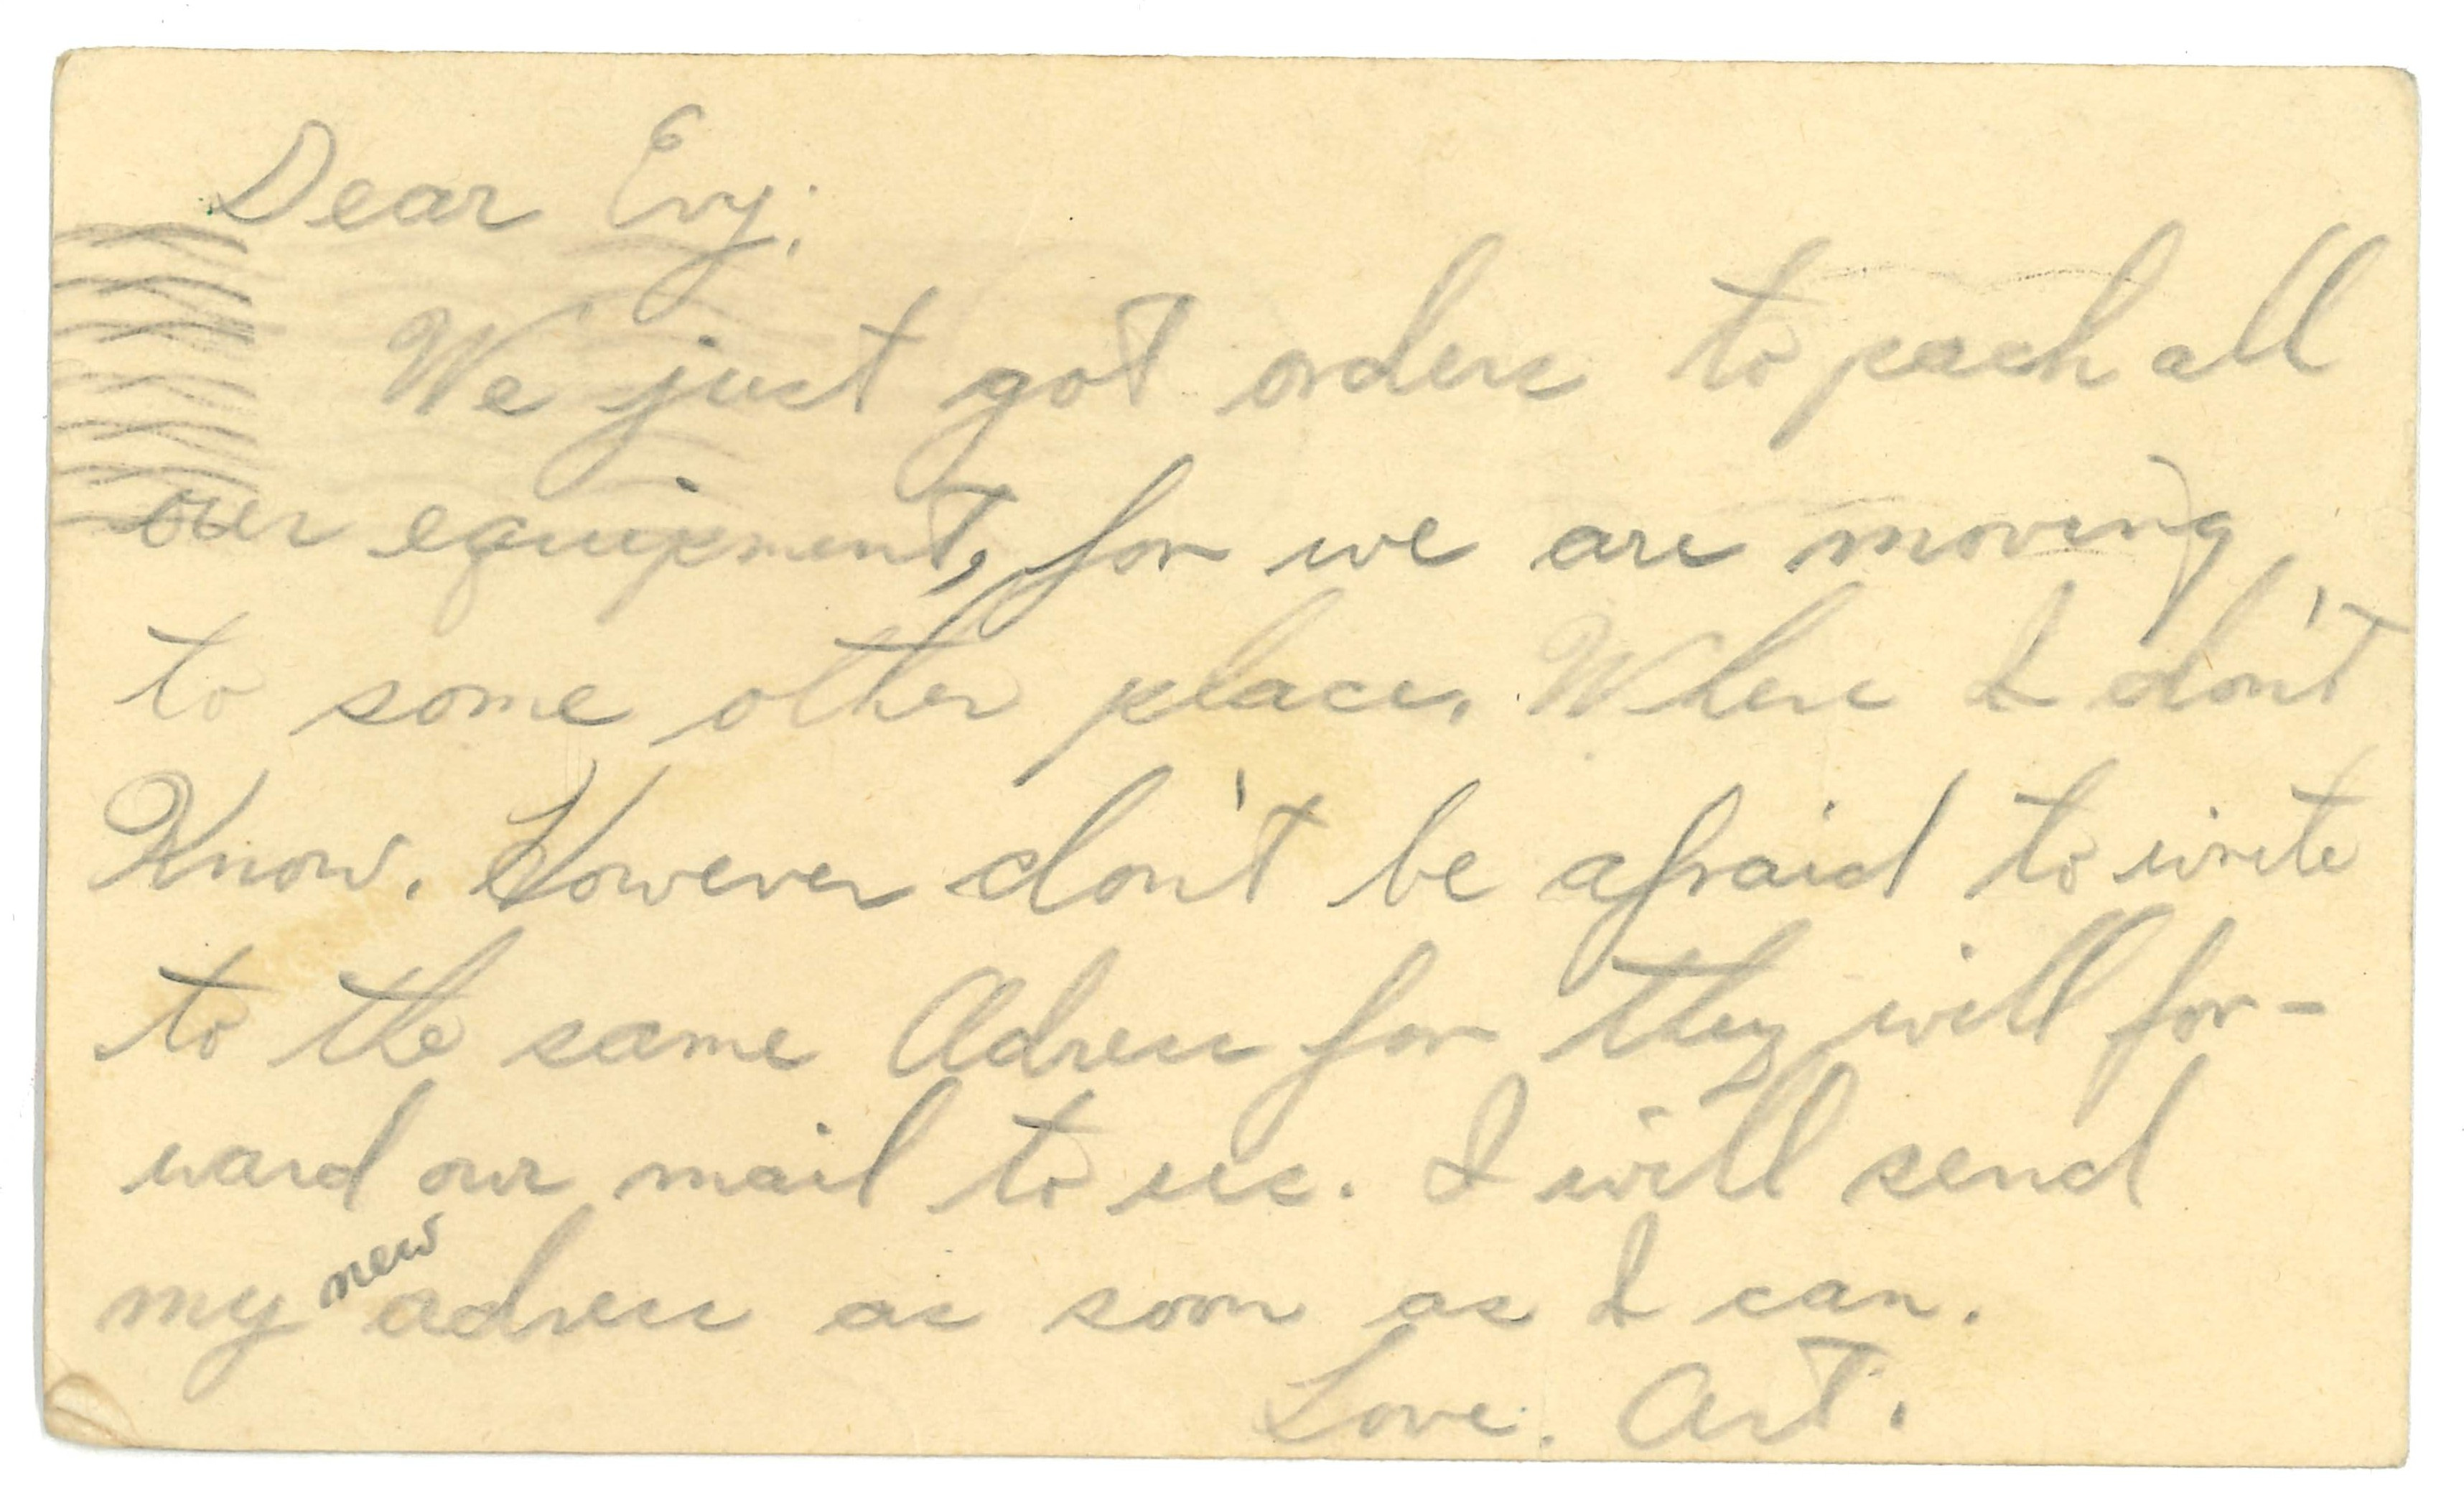 Dear Evy:
We just got orders to pack all
our equipment, for we are moving
to some other place. Where I don't
Know. However don't be afraid to write
to the same Adress for they will for-
ward our mail to us. I will send
my new adress as soon as I can.
Love. Art.